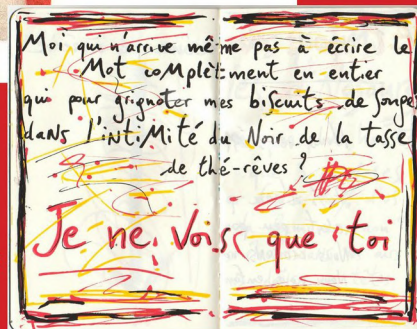 Moi qui n'arrive même pas à écrire le
Mot complètement en entier
qui pour grignoter mes biscuits de songe
dans l'intiMité du Noir de la tasse
de thé-rêves ?
Je ne vois que toi